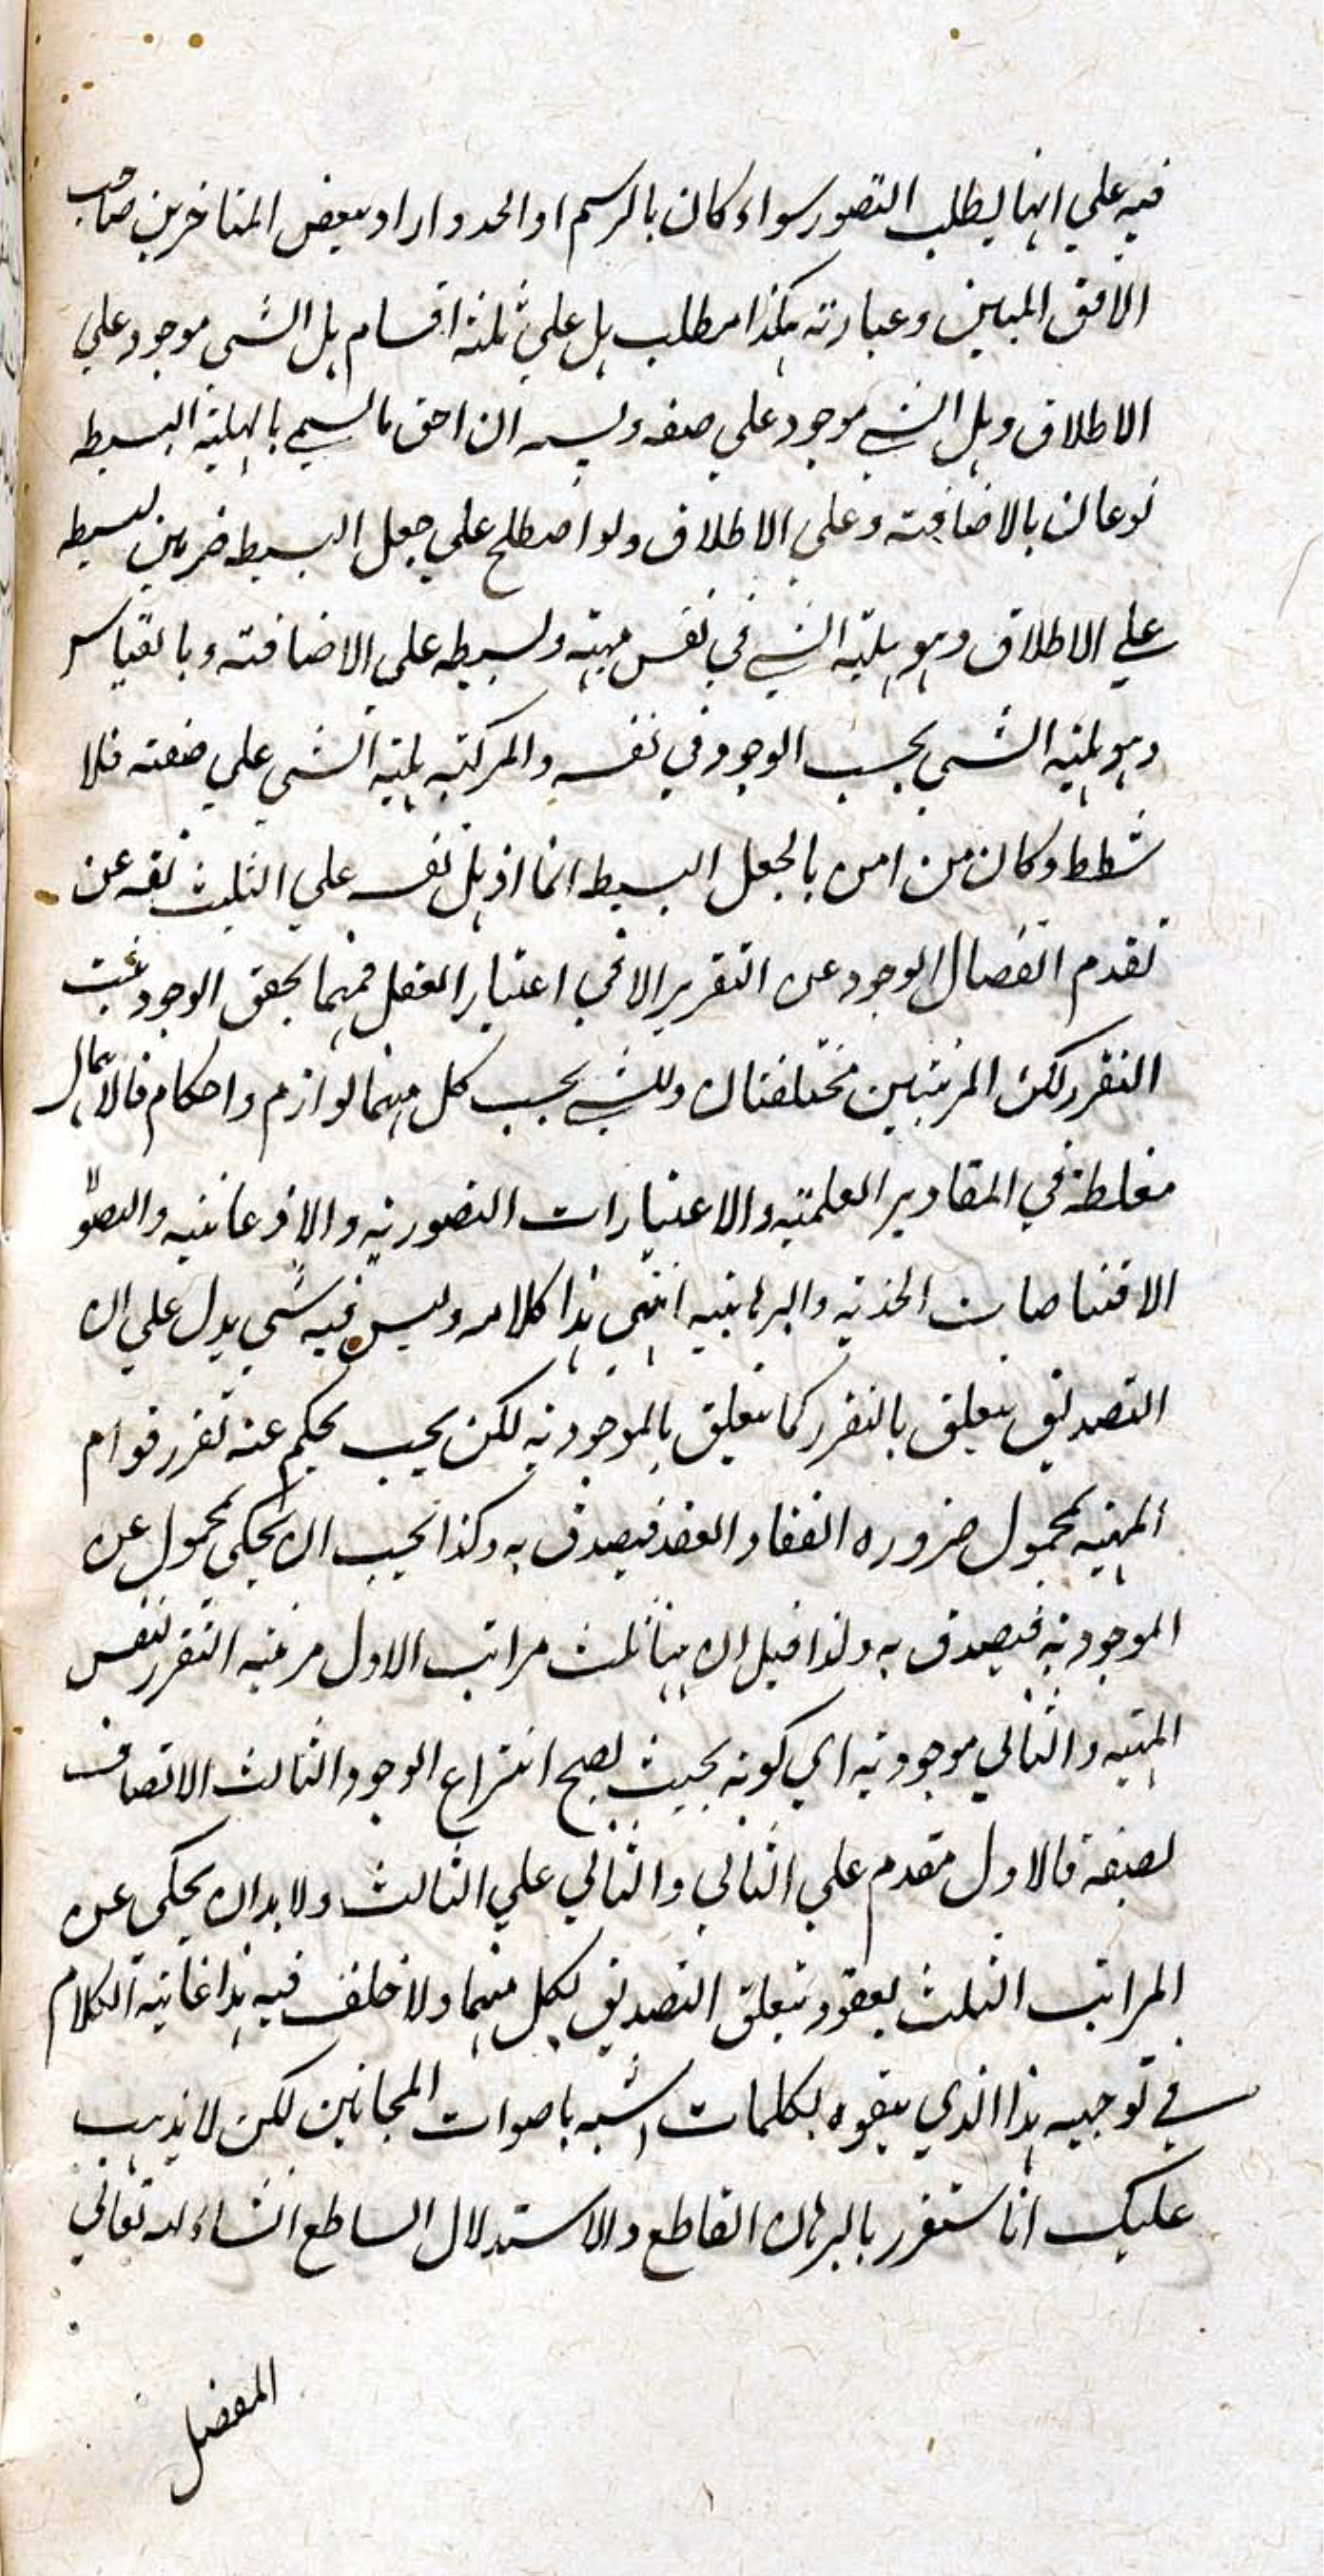 فيه علي انها يطلب التصور سواء كان بالرسم او الحد واراد ببعض المتاخرين صاحب
الافق المبين وعبارته هكذا مطلب هل علي ثلثة اقسام هل الشي موجود علي
الاطلاق وهل الشي موجود علي صفة وليس ان احق ما يسمي بالهلية البسيطة
نوعان بالاضافة وعلي الاطلاق ولو اصطلح علي جعل البسيط ضربين بسيطة
علي الاطلاق وهو هلية الشي في نفس مهيته وبسيطة علي الاضافة وبالقياس
وهو هلية الشي بحسب الوجود في نفسه والمركبة هلية الشي علي صفته فلا
شطط وكان من امن بالجعل البسيط انما اذهل نفسه علي التثليث ثقة عن
تقدم انفصال الوجود عن التقرير الا في اعتبار العقل فمهما يحقق الوجود يثبت
التقرر لكن المرتبتين مختلفتان وللشي بحسب كل منهما لوازم واحكام فالاهمال
مغلطة في المقادير العلمية والاعتبارات التصورية والاذعانية والصولا
الاقتناصات الحدية والبرهانية انتهي هذا كلامه وليس فيه شي يدل علي ان
التصديق يتعلق بالتقرر كما يتعلق بالموجودية لكن يجب يحكم عنه تقرر قوام
المهية بمحمول ضرورة انعقاد العقد فيصدق به وكذا يجب ان يحكي بمحمول عن
الموجودية فيصدق به ولذا قيل ان ههنا ثلث مراتب الاول مرتبة التقرر نفس
المهية والثاني موجودية اي كونه بحيث يصح انتزاع الوجود والثالث الاتصاف
لصفة فالاول مقدم علي الثاني والثاني علي الثالث ولا بد ان يحكي عن
المراتب الثلث بعقود يتعلق التصديق بكل منهما ولا خلف فيه هذا غاية الكلام
في توجيه هذا الذي يتفوه بكلمات اشبه باصوات المجانين لكن لا يذهب
عليك انا سنقرر بالبرهان القاطع والاستدلال الساطع انشاء الله تعالي
المفصل